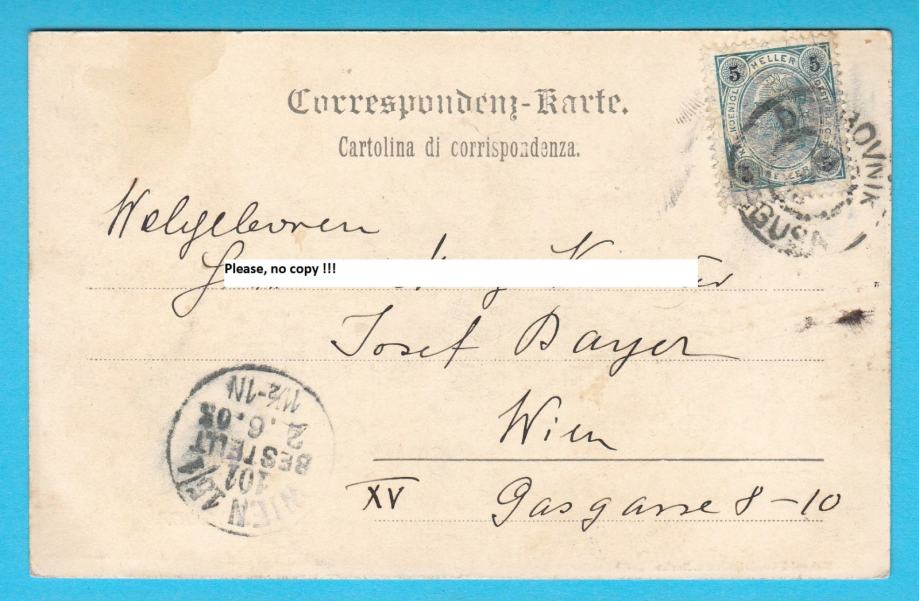 Correspondenz-Karte.
Cartolina di corrispondenza.
5 HELLER 5
5 5
Wolgeboren
Please, no copy !!!
Josef Bayer
Wien
XV Gasgasse 8-10
WIEN 15/1
101
BESTELLT
2.6.03
11½-1N